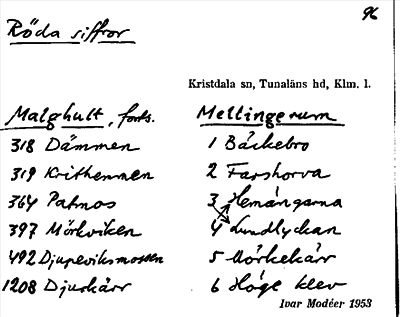 96
Röda siffror
Kristdala sn, Tunaläns hd, Klm. l.
Malghult, forts.
318 Dämmen
319 Krithemmen
364 Patmos
397 Mörkviken
492 Djupeviksmossen
1208 Djurkärr
Mellingerum
1 Bäckebro
2 Farshorva
3 Hemängarna
4 Lundlyckan
5 Mörkekärr
6 Höge klev
Ivar Modéer 1953